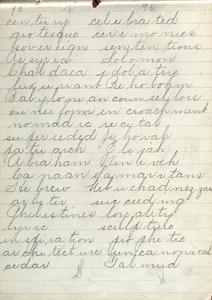 90 90
century celebrated
grotesque ceremonies
sovereign sententious
Assyria Solomon
Chaldara idolatry
Rehoboam
Babylonian counsellors
cuneiform encroachment
nomadic recital
superseded Jehovah
patriarch Elijah
Abraham
Canaan Samaritans
Hebrew Nebuchadnezzar
arbiter succeeding
Philistines loyality
lyric sculpture
inspiration prophetic
architecture uncanonical
cedar Talmud